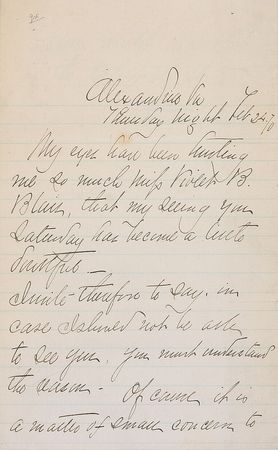 Alexandria Va
Thursday night Feb 24 70
My eyes have been hurting
me so much Miss Violet B.
Blair, that my seeing you
Saturday has become a little
doubtful. —
I write therefore to say, in
case I should not be able
to see you, you must understand
the reason - Of course it is
a matter of small concern to